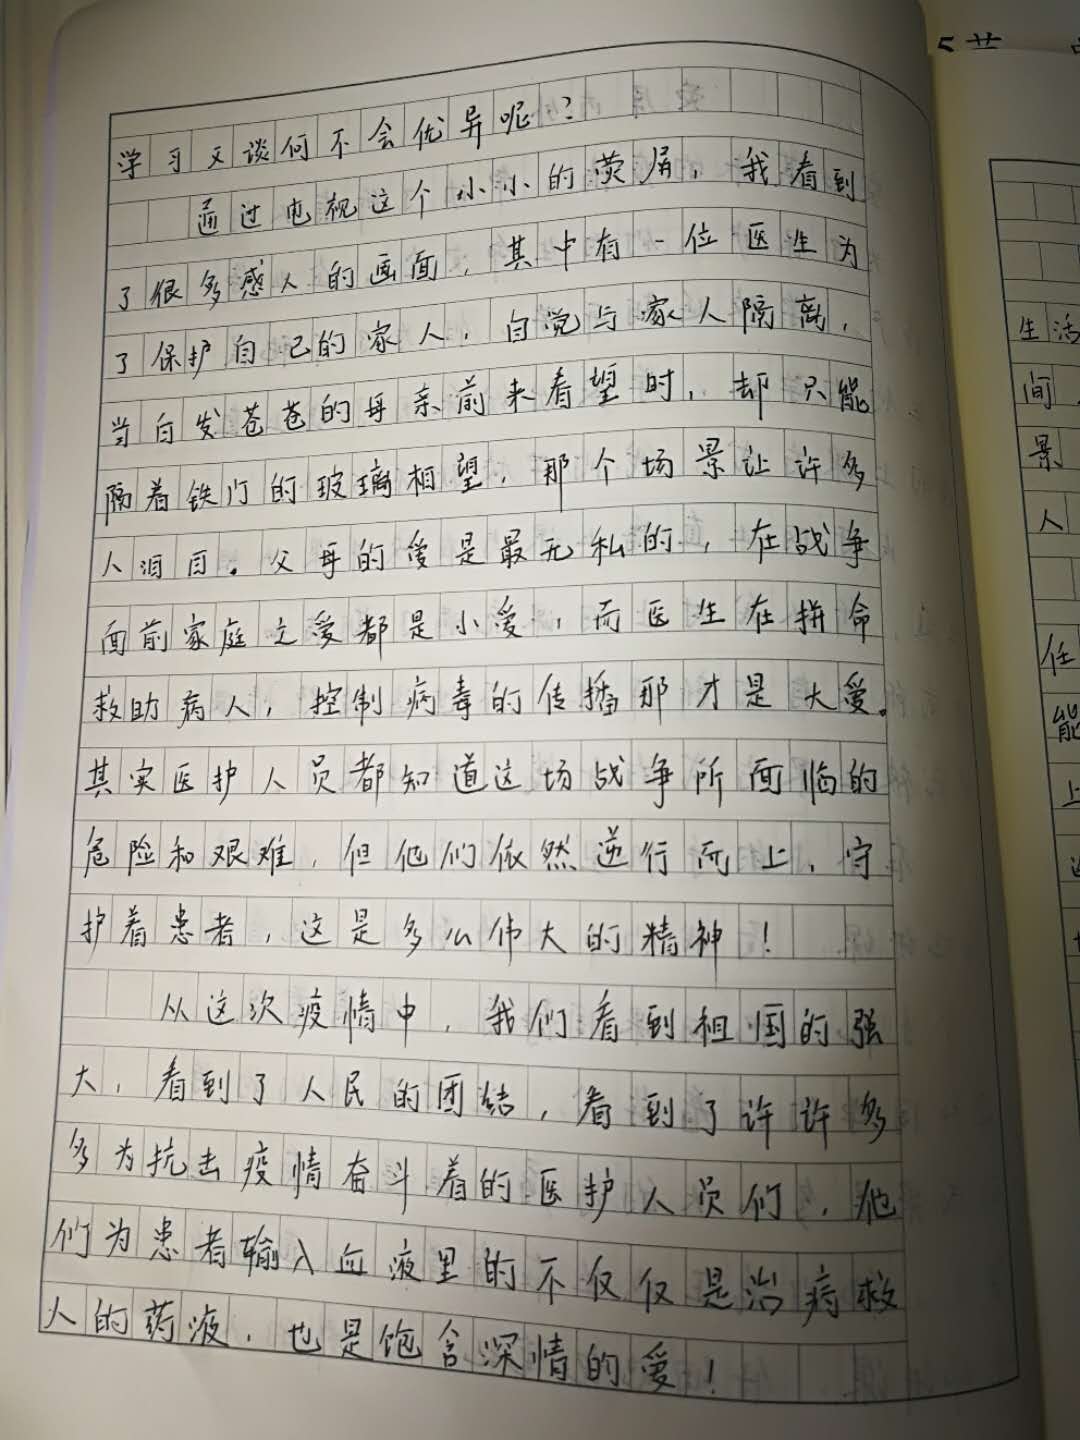 学习又谈何不会优异呢？
通过电视这个小小的荧屏，我看到
了很多感人的画面，其中有一位医生为
了保护自己的家人，自觉与家人隔离，
当白发苍苍的母亲前来看望时，却只能
隔着铁门的玻璃相望，那个场景让许多
人泪目。父母的爱是最无私的，在战争
面前家庭之爱都是小爱，而医生在拼命
救助病人，控制病毒的传播那才是大爱。
其实医护人员都知道这场战争所面临的
危险和艰难，但他们依然逆行而上，守
护着患者，这是多么伟大的精神！
从这次疫情中，我们看到祖国的强
大，看到了人民的团结，看到了许许多
多为抗击疫情奋斗着的医护人员们，他
们为患者输入血液里的不仅仅是治病救
人的药液，也是饱含深情的爱！
5节
生活
间
景
人
任
能
上